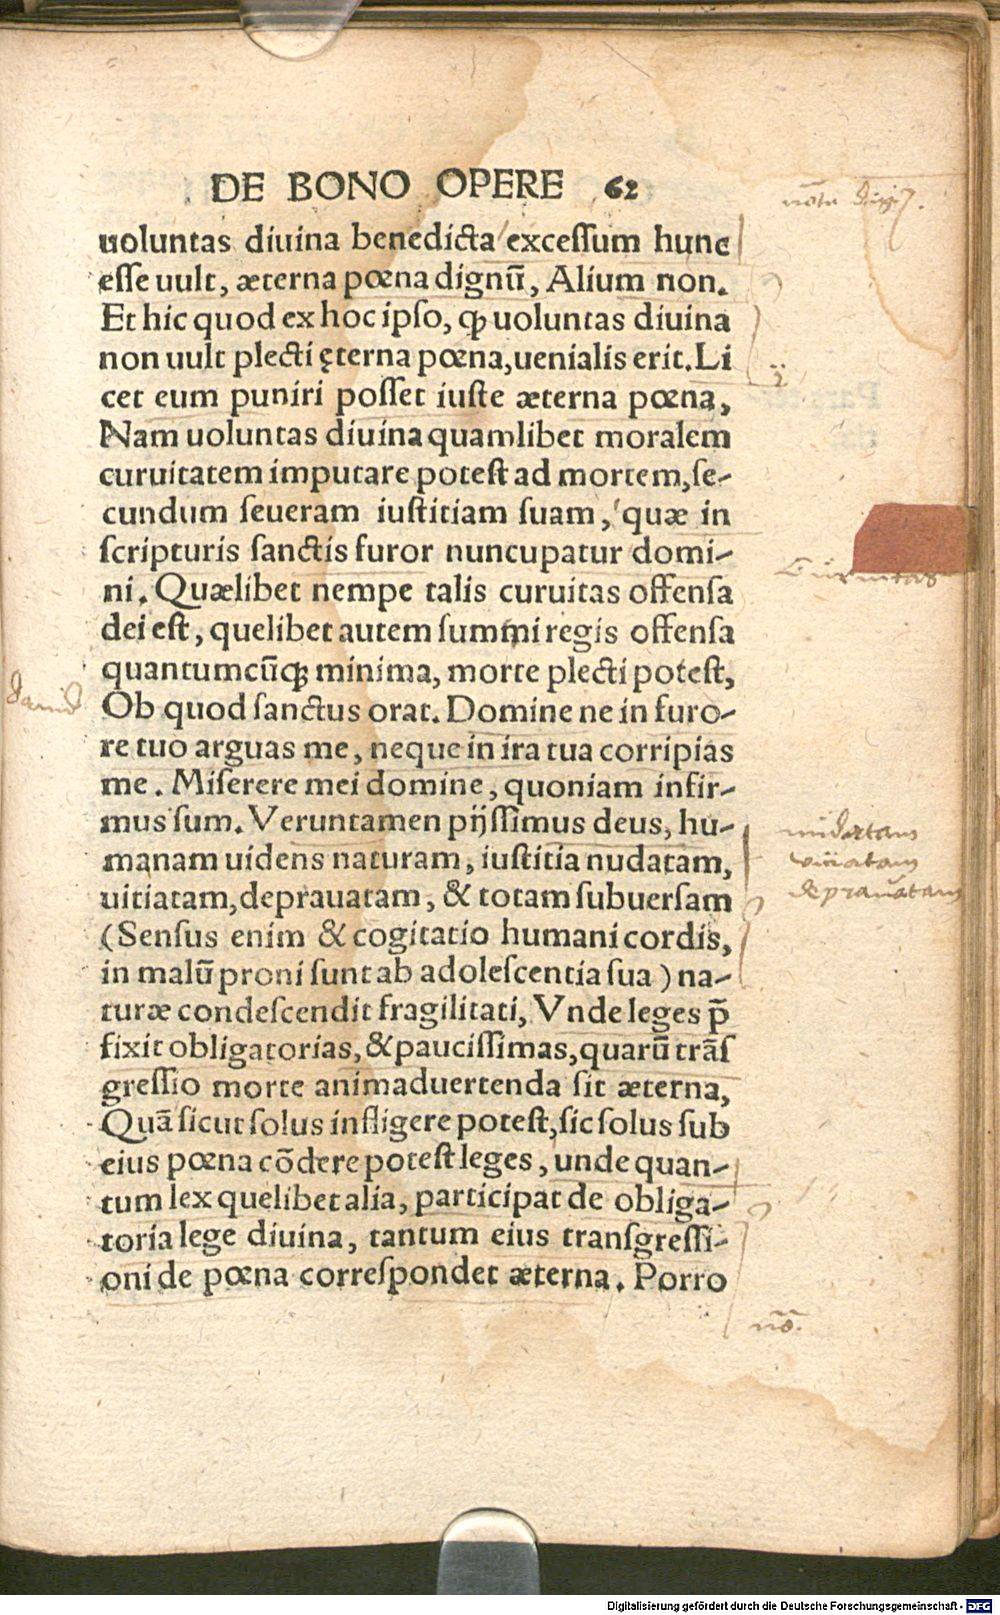 DE BONO OPERE 62
uoluntas diuina benedicta excessum hunc
esse uult, æterna pœna dignū, Alium non.
Et hic quod ex hoc ipso, ꝙ uoluntas diuina
non uult plecti ęterna pœna, uenialis erit. Li
cet eum puniri posset iuste æterna pœna,
Nam uoluntas diuina quamlibet moralem
curuitatem imputare potest ad mortem, se-
cundum seueram iustitiam suam, quæ in
scripturis sanctis furor nuncupatur domi-
ni. Quælibet nempe talis curuitas offensa
dei est, quelibet autem summi regis offensa
quantumcūqꝫ minima, morte plecti potest,
Ob quod sanctus orat. Domine ne in furo-
re tuo arguas me, neque in ira tua corripias
me. Miserere mei domine, quoniam infir-
mus sum. Veruntamen pijssimus deus, hu-
manam uidens naturam, iustitia nudatam,
uitiatam, deprauatam, & totam subuersam
(Sensus enim & cogitatio humani cordis,
in malū proni sunt ab adolescentia sua) na-
turæ condescendit fragilitati, Vnde leges p̄
fixit obligatorias, & paucissimas, quarū trās
gressio morte animaduertenda sit æterna,
Quā sicut solus infligere potest, sic solus sub
eius pœna cōdere potest leges, unde quan-
tum lex quelibet alia, participat de obliga-
toria lege diuina, tantum eius transgressi-
oni de pœna correspondet æterna. Porro
Curuitas
dauid
nudatam
vitiatam
depravatam
nō.
Digitalisierung gefördert durch die Deutsche Forschungsgemeinschaft - DFG